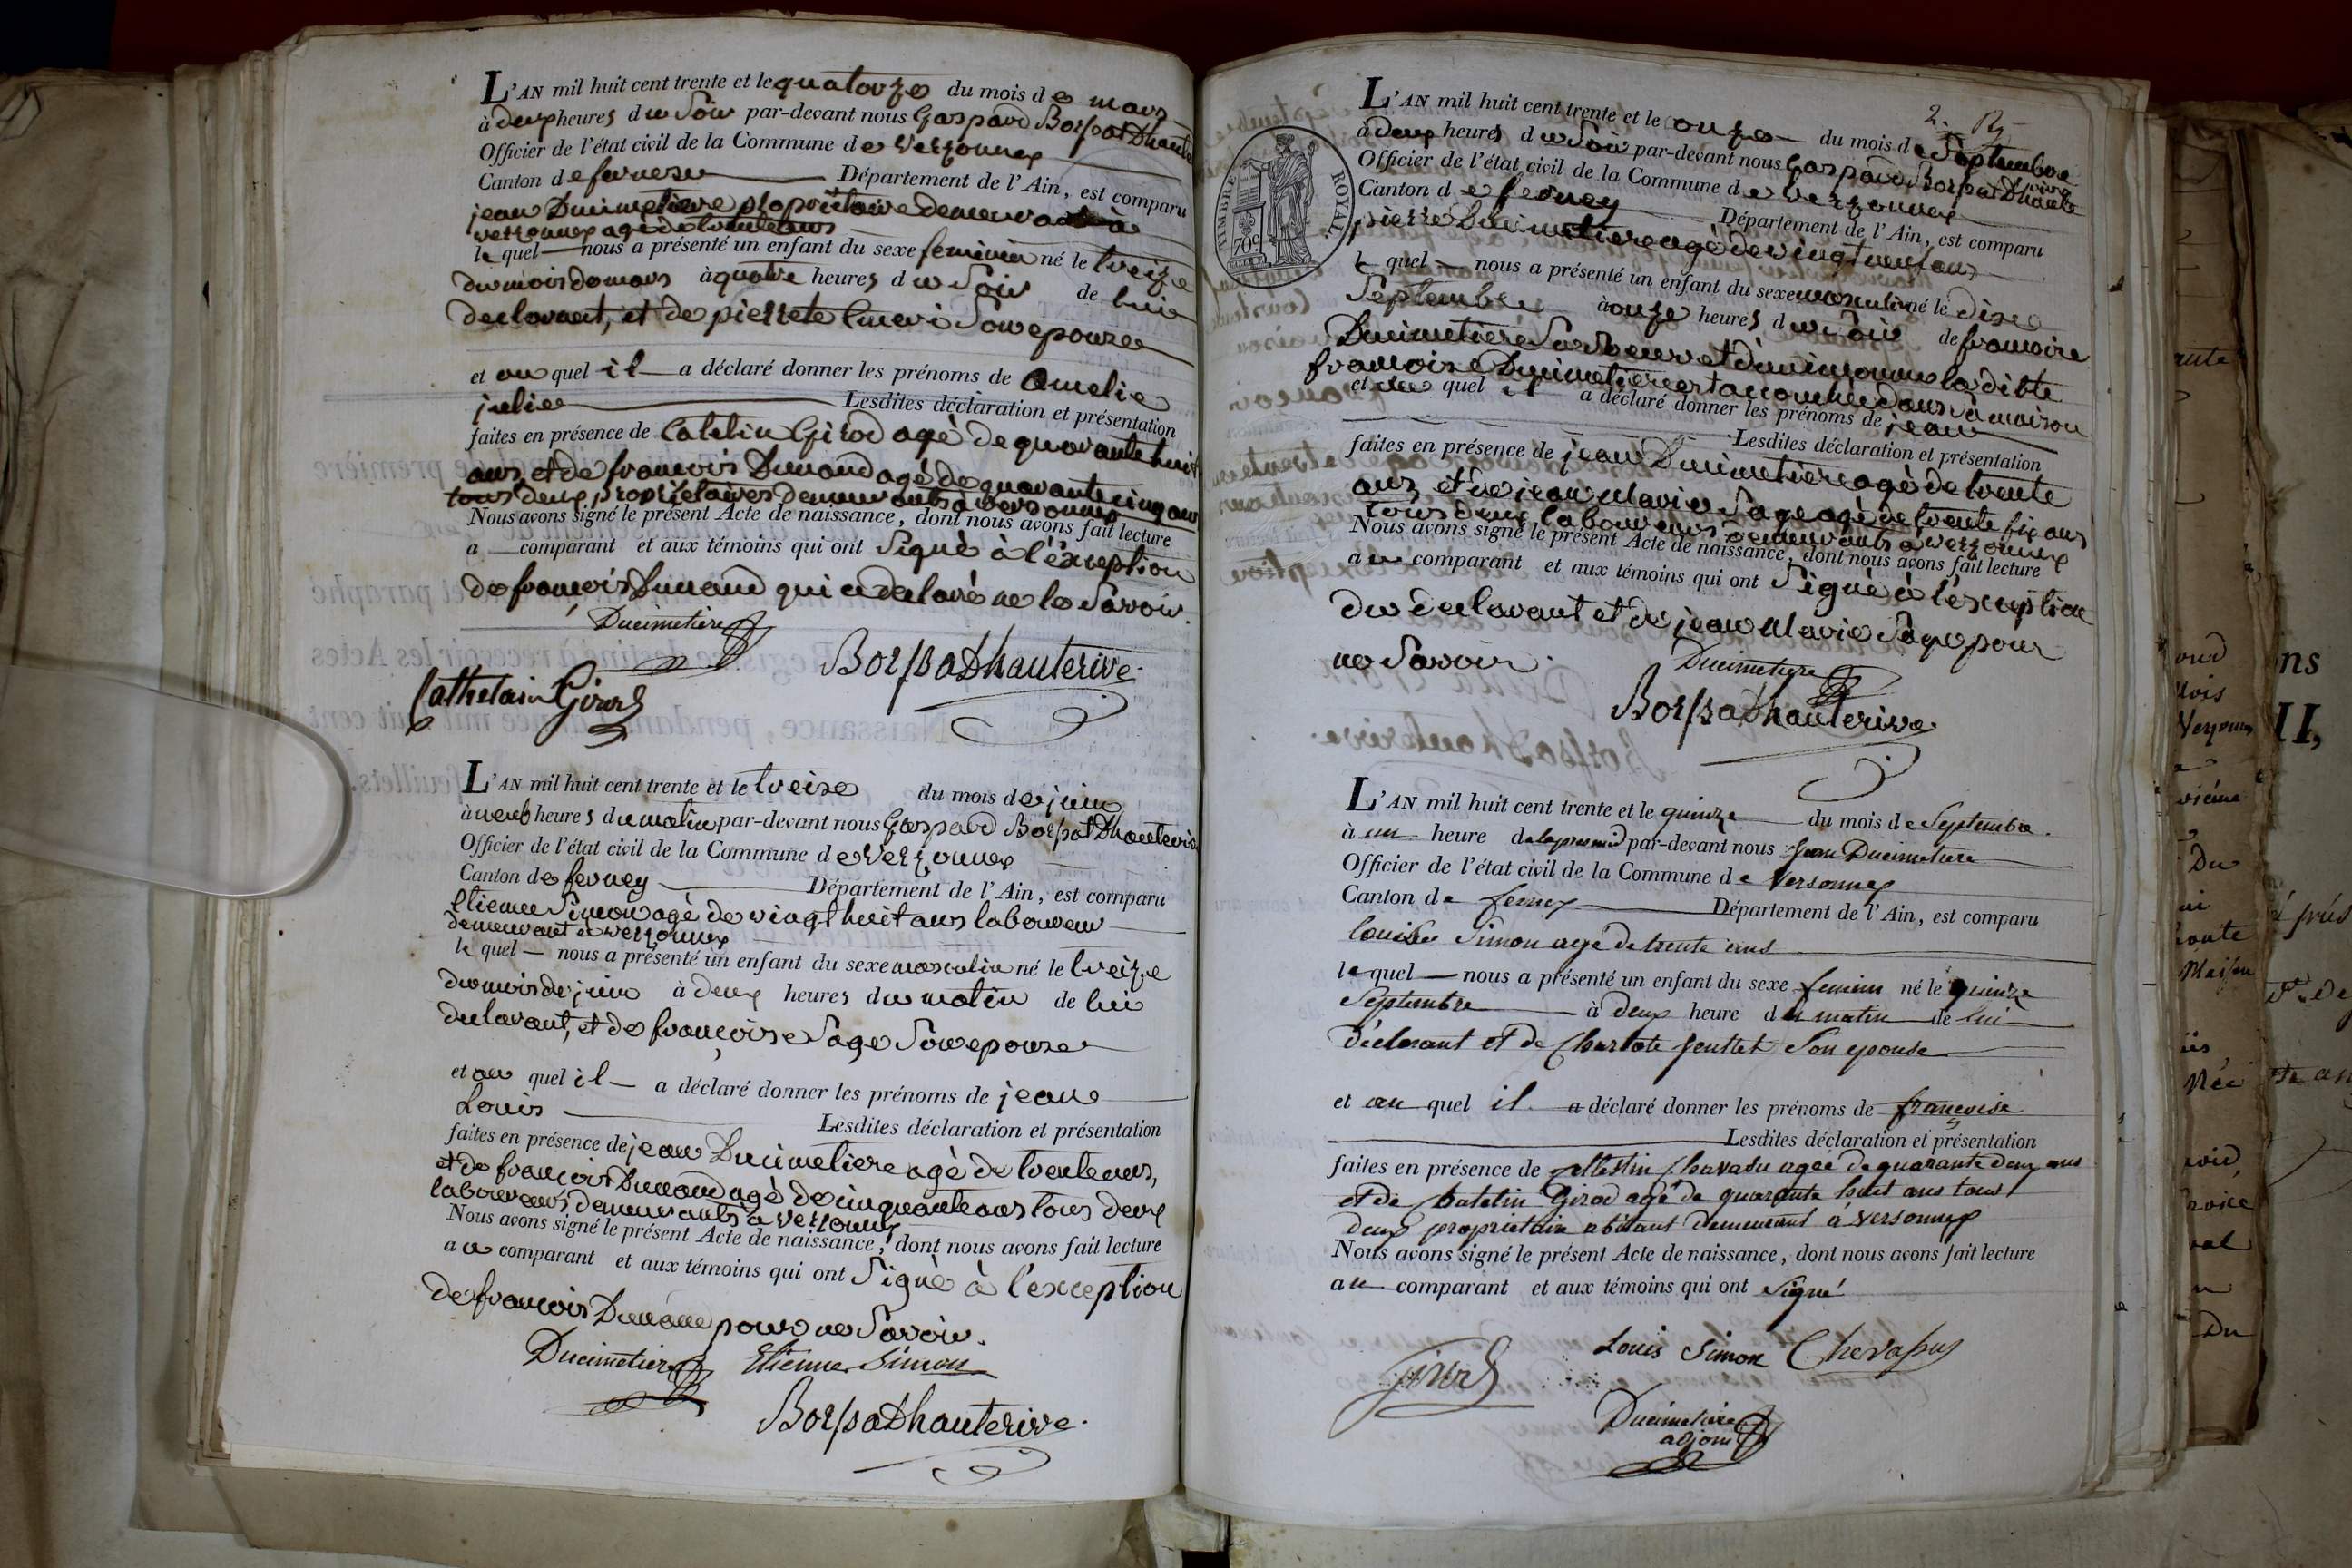 L'AN mil huit cent trente et le quatorze du mois de mars
à deux heures du Soir par-devant nous Gaspard Borssat Dhauterive
Officier de l'état civil de la Commune de Verzonnex
Canton de Département de l'Ain, est comparu
jean Ducimetiere propriétaire demeurant à
verzonnex agé de trente ans
le quel nous a présenté un enfant du sexe feminin né le treize
du mois de mars à quatre heures du Soir de lui
declarant, et de pierrete Son epouze
et au quel il a déclaré donner les prénoms de Amelie
julie Lesdites déclaration et présentation
faites en présence de Catelin Girod agè de quarante huit
ans, et de francois Dunand agé de quarante cinq ans
tous deux propriétaires demeurants a versonnex
Nous avons signé le présent Acte de naissance, dont nous avons fait lecture
a comparant et aux témoins qui ont Signè à l'éxception
de francois Dunand qui a declaré ne le Savoir.
Ducimetière
Borssat Dhauterive
Cathelain Girod
L'AN mil huit cent trente et le treize du mois de juin
à neuf heures du matin par-devant nous Gaspard Borssat Dhauterive
Officier de l'état civil de la Commune de Verzonnex
Canton de ferney Département de l'Ain, est comparu
Etienne Simon agè de vingt huit ans laboureur
demeurant a verzonnex
le quel nous a présenté un enfant du sexe masculin né le treize
du mois de juin à deux heures du matin de lui
declarant, et de françoise Sage Son epouze
et au quel il a déclaré donner les prénoms de jean
Louis Lesdites déclaration et présentation
faites en présence de jean Ducimetiere agè de trente ans,
et de françois Dunand agè de cinquante ans tous deux
laboureurs demeurants à verzonnex
Nous avons signé le présent Acte de naissance, dont nous avons fait lecture
au comparant et aux témoins qui ont Signè à l'exception
de francois Dunand pour ne Savoir.
Ducimetiere Etienne Simon
Borssat Dhauterive.
2.
TIMBRE ROYAL.
70c
L'AN mil huit cent trente et le onze du mois de Septembre
à deux heures du Soir par-devant nous Gaspard Borssat Dhauterive
Officier de l'état civil de la Commune de verzonnex
Canton de ferney Département de l'Ain, est comparu
pierre Ducimetiere agè de vingt neuf ans
le quel nous a présenté un enfant du sexe masculin né le dix
Septembre à onze heures du Soir de francoise
Ducimetiere Sa Soeur et d'un inconnu la ditte
francoise Ducimetiere est accouchée dans Sa maison
et au quel il a déclaré donner les prénoms de jean
Lesdites déclaration et présentation
faites en présence de jean Ducimetiere agè de trente
ans, et de jean Marie Sage agè de trente six ans
tous deux laboureurs demeurants à verzonnex
Nous avons signé le présent Acte de naissance, dont nous avons fait lecture
au comparant et aux témoins qui ont Signè à l'exception
du declarant et de jean Marie Sage pour
ne Savoir.
Ducimetiere
Borssat Dhauterive
L'AN mil huit cent trente et le quinze du mois de Septembre.
à un heure de par-devant nous Jean Ducimetiere
Officier de l'état civil de la Commune de Versonnex
Canton de ferney Département de l'Ain, est comparu
Louis Simon agé de trente ans
le quel nous a présenté un enfant du sexe feminin né le quinze
Septembre à deux heure du matin de lui
déclarant et de Charlote Son epouse
et au quel il a déclaré donner les prénoms de françoise
Lesdites déclaration et présentation
faites en présence de agée de quarante deux ans
et de Catelin Girod agé de quarante huit ans tous
deux propriétaire demeurant à Versonnex
Nous avons signé le présent Acte de naissance, dont nous avons fait lecture
au comparant et aux témoins qui ont signé
Louis Simon
Girod
Ducimetiere
adjoint